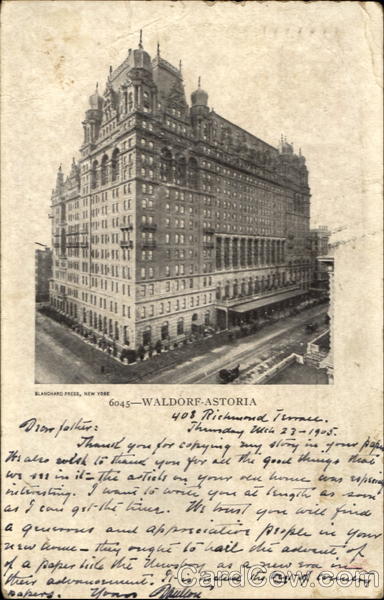 BLANCHARD PRESS, NEW YORK
6045—WALDORF-ASTORIA
408 Richmond Terrace.
Thursday Mch 23-1905.
Dear father:
Thank you for copying my story in your paper
We also wish to thank you for all the good things that
we see in it - the article on your old home was
interesting. I want to write you at length as soon
as I can get the time. We trust you will find
a generous and appreciative people in your
new home - they ought to hail the advent of
of a paper like the as a new era in
their advancement. It is among the best of
papers. Yours
CardCow.com